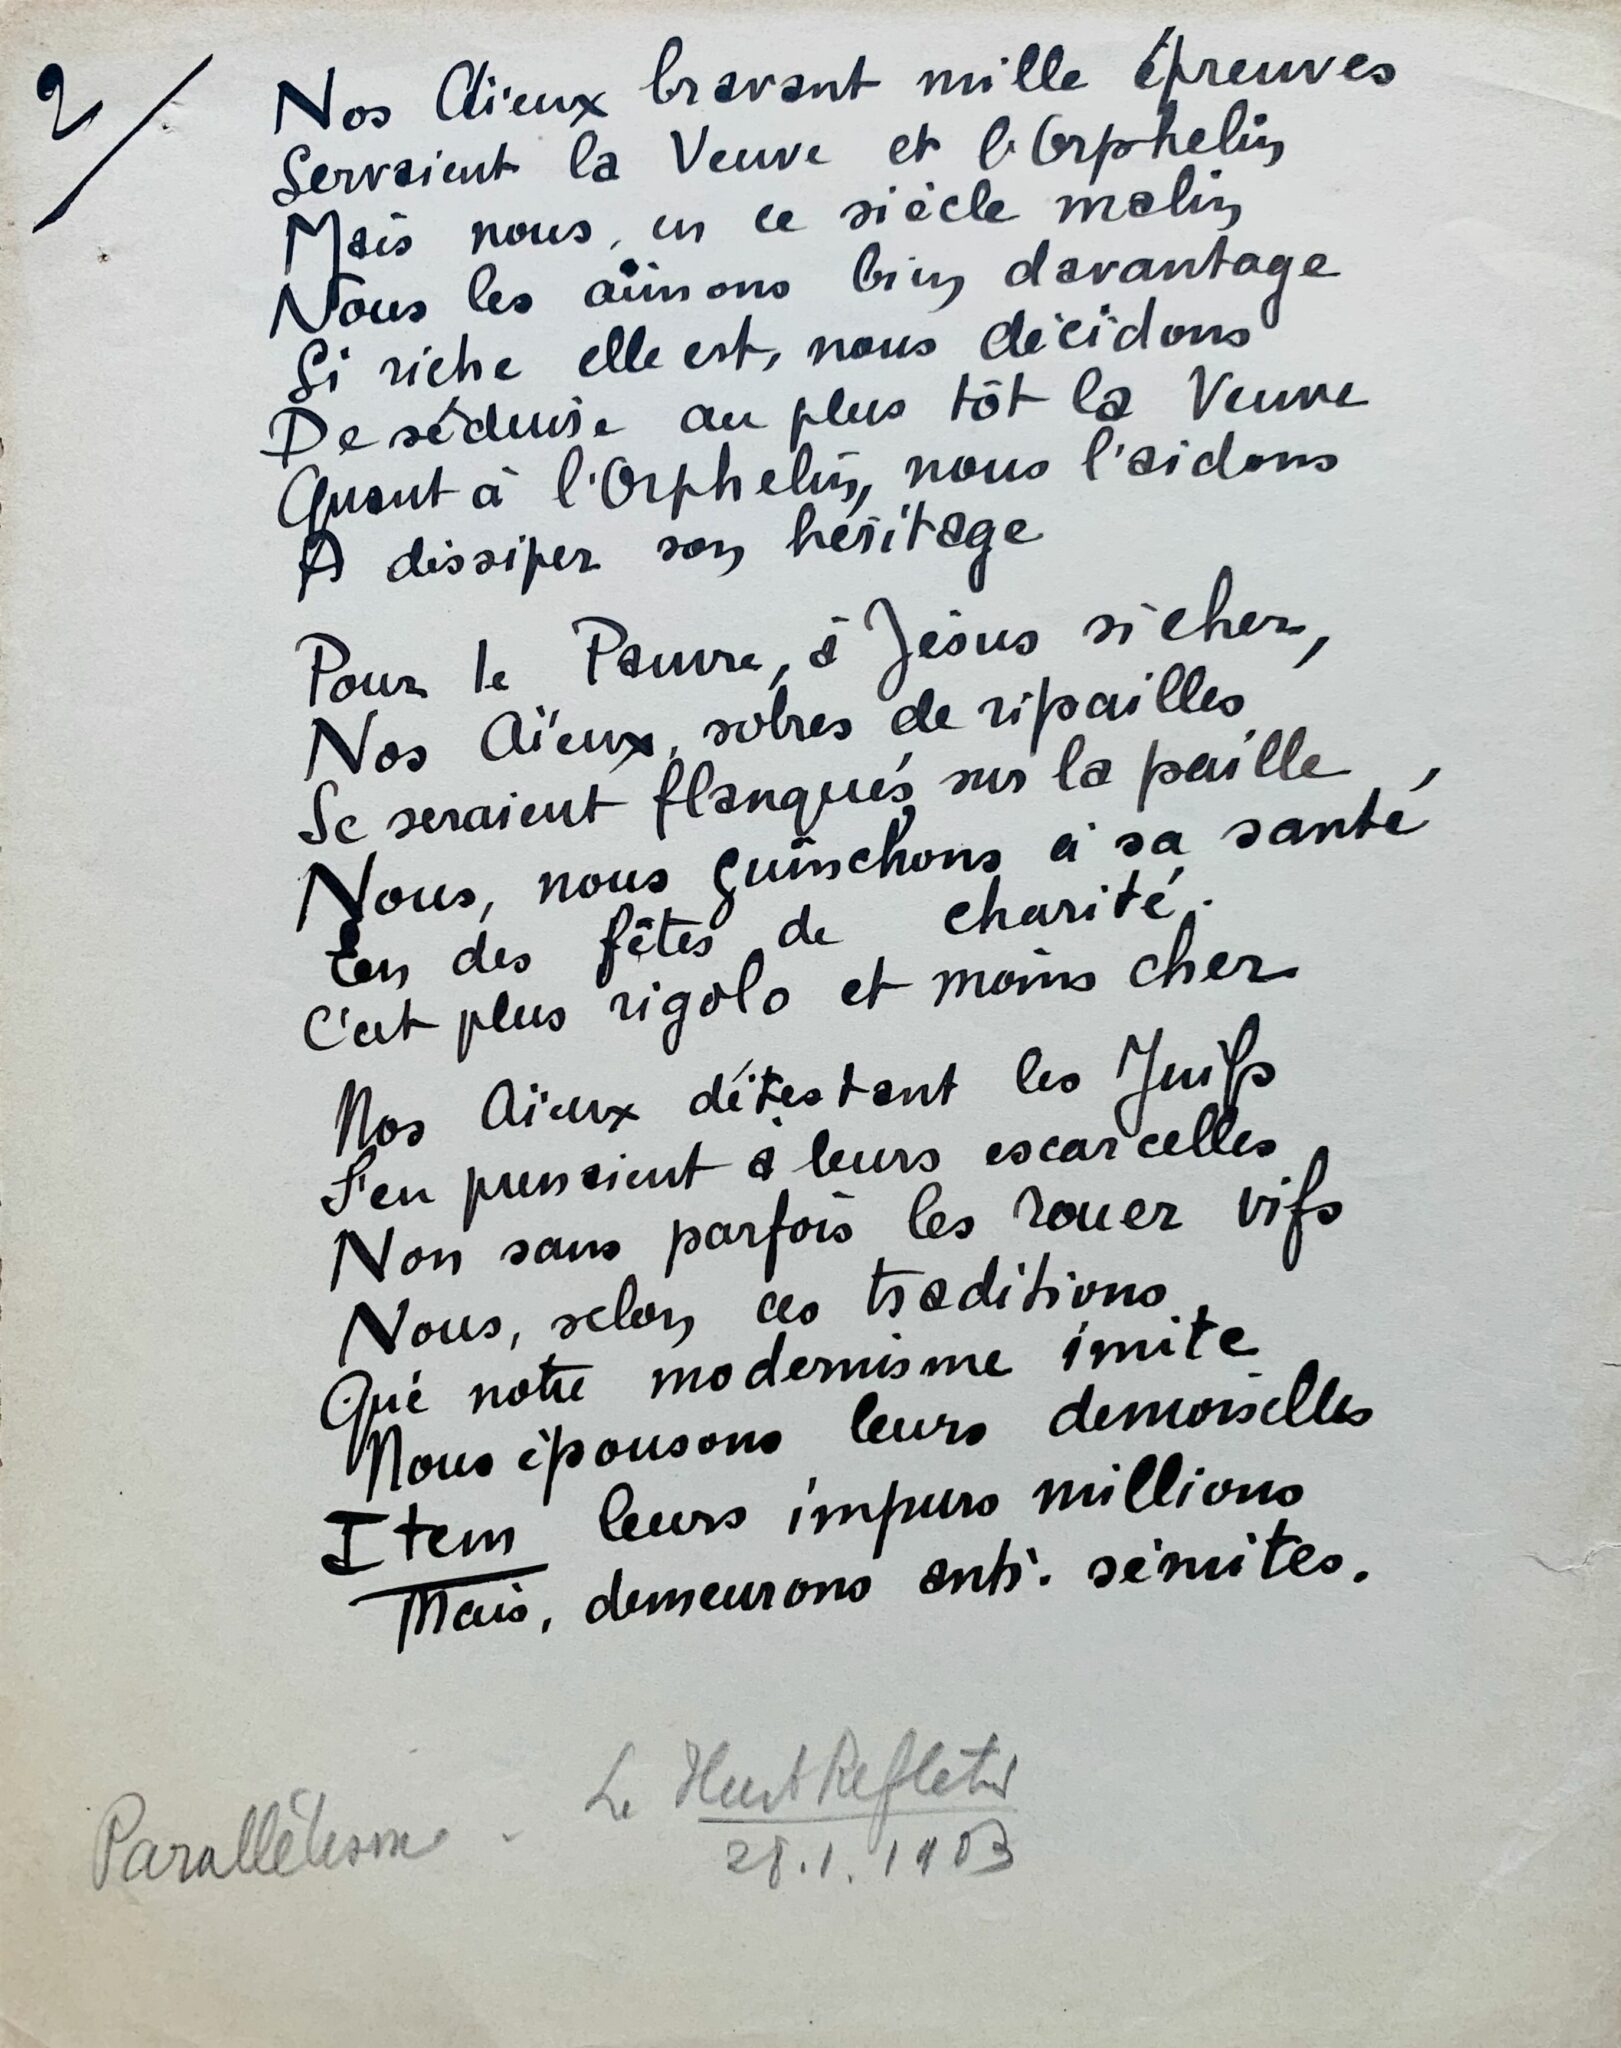 2/
Nos Aïeux bravant mille épreuves
Servaient la Veuve et l'Orphelin
Mais nous, en ce siècle malin
Nous les aimons bien davantage
Si riche elle est, nous décidons
De séduire au plus tôt la Veuve
Quant à l'Orphelin, nous l'aidons
A dissiper son héritage
Pour le Pauvre, à Jésus si cher,
Nos Aïeux, sobres de ripailles
Se seraient flanqués sur la paille,
Nous, nous guinchons à sa santé
En des fêtes de charité.
C'est plus rigolo et moins cher
Nos Aïeux détestant les Juifs
S'en prenaient à leurs escarcelles
Non sans parfois les rouer vifs
Nous, selon ces traditions
Que notre modernisme imite
Nous épousons leurs demoiselles
Item leurs impurs millions
Mais, demeurons anti-sémites.
Parallélisme - Le
28.1.1903